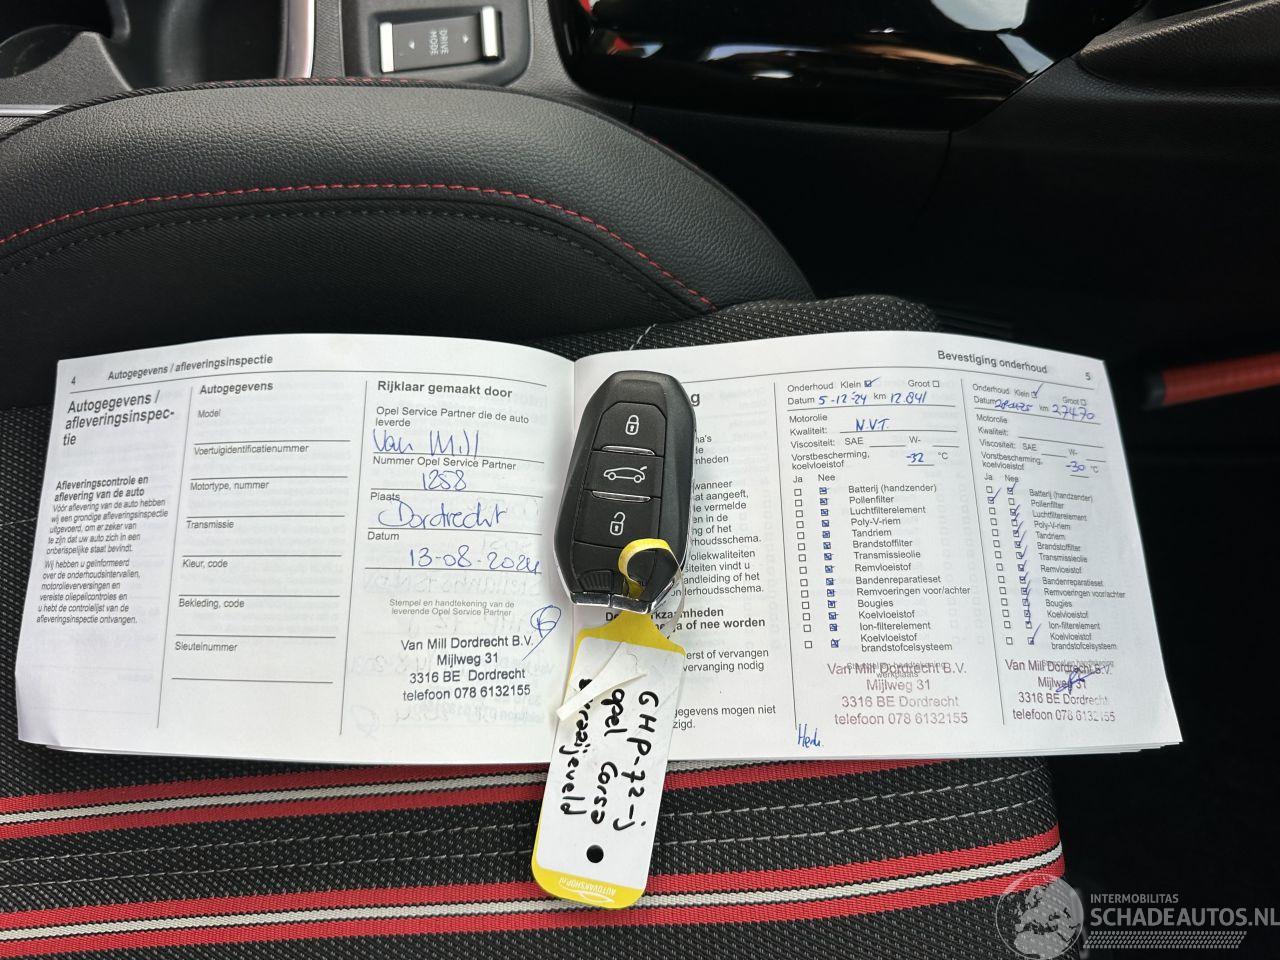 DRIVE
MODE
4
Autogegevens / afleveringsinspectie
Autogegevens /
afleveringsinspec-
tie
Afleveringscontrole en
aflevering van de auto
Vóór aflevering van de auto hebben
wij een grondige afleveringsinspectie
uitgevoerd, om er zeker van
te zijn dat uw auto zich in een
onberispelijke staat bevindt.
Wij hebben u geïnformeerd
over de onderhoudsintervallen,
motorolieverversingen en
vereiste oliepeilcontroles en
u hebt de controlelijst van de
afleveringsinspectie ontvangen.
Autogegevens
Model
Voertuigidentificatienummer
Motortype, nummer
Transmissie
Kleur, code
Bekleding, code
Sleutelnummer
Rijklaar gemaakt door
Opel Service Partner die de auto
leverde
Van Mill
Nummer Opel Service Partner
1258
Plaats
Dordrecht
Datum
13-08-2024
Stempel en handtekening van de
leverende Opel Service Partner
Van Mill Dordrecht B.V.
Mijlweg 31
3316 BE Dordrecht
telefoon 078 6132155
GHP-72-j
opel Corsa
AUTOVANSHOP.nl
wanneer
at aangeeft,
e vermelde
en in de
ng of het
rhoudsschema.
oliekwaliteiten
siteiten vindt u
andleiding of het
derhoudsschema.
ga of nee worden
erst of vervangen
vervanging nodig
gegevens mogen niet
zigd.
Bevestiging onderhoud
5
Onderhoud Klein Groot
Datum 5-12-24 km 12.841
Motorolie
Kwaliteit: N.V.T.
Viscositeit: SAE W-
Vorstbescherming,
koelvloeistof -32 °C
Ja Nee
Batterij (handzender)
Pollenfilter
Luchtfilterelement
Poly-V-riem
Tandriem
Brandstoffilter
Transmissieolie
Remvloeistof
Bandenreparatieset
Remvoeringen voor/achter
Bougies
Koelvloeistof
Ion-filterelement
Koelvloeistof
brandstofcelsysteem
Van Mill Dordrecht B.V.
Mijlweg 31
3316 BE Dordrecht
telefoon 078 6132155
Onderhoud Klein Groot
Datum km 27470
Motorolie
Kwaliteit:
Viscositeit: SAE W-
Vorstbescherming,
koelvloeistof -30 °C
Ja Nee
Batterij (handzender)
Pollenfilter
Luchtfilterelement
Poly-V-riem
Tandriem
Brandstoffilter
Transmissieolie
Remvloeistof
Bandenreparatieset
Remvoeringen voor/achter
Bougies
Koelvloeistof
Ion-filterelement
Koelvloeistof
brandstofcelsysteem
Van Mill Dordrecht B.V.
Mijlweg 31
3316 BE Dordrecht
telefoon 078 6132155
INTERMOBILITAS
SCHADEAUTOS.NL